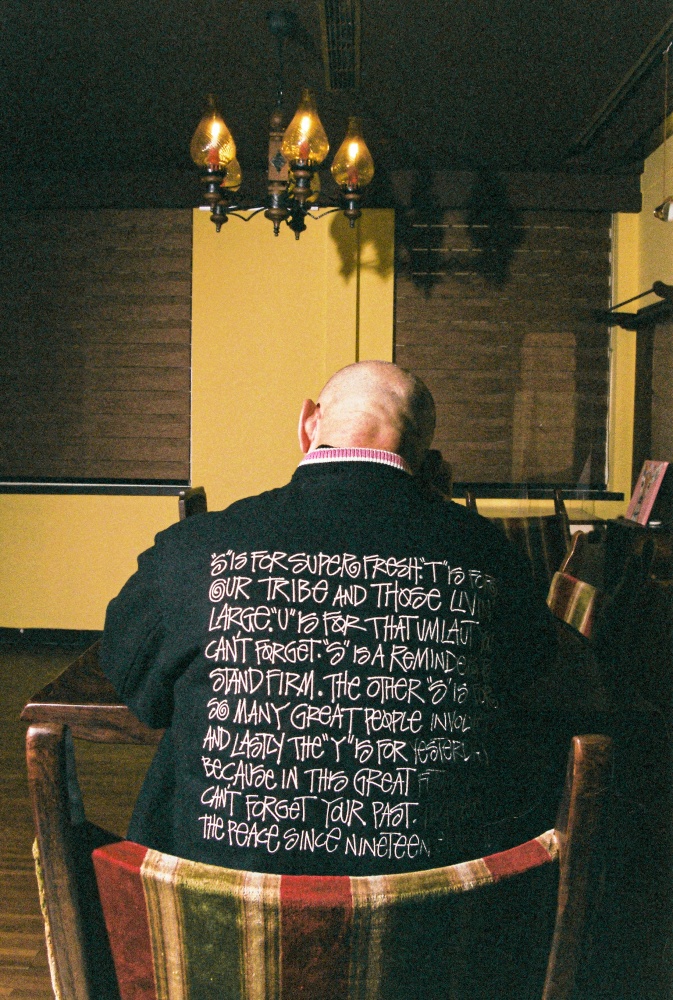 "S" IS FOR SUPER FRESH. "T" IS FOR
OUR TRIBE AND THOSE LIVIN
LARGE. "U" IS FOR THAT UMLAUT
CAN'T FORGET. "S" IS A REMINDER
STAND FIRM. THE OTHER "S" IS FOR
SO MANY GREAT PEOPLE INVOL
AND LASTLY THE "Y" IS FOR YESTERD
BECAUSE IN THIS GREAT
CAN'T FORGET YOUR PAST.
THE PEACE SINCE NINETEEN